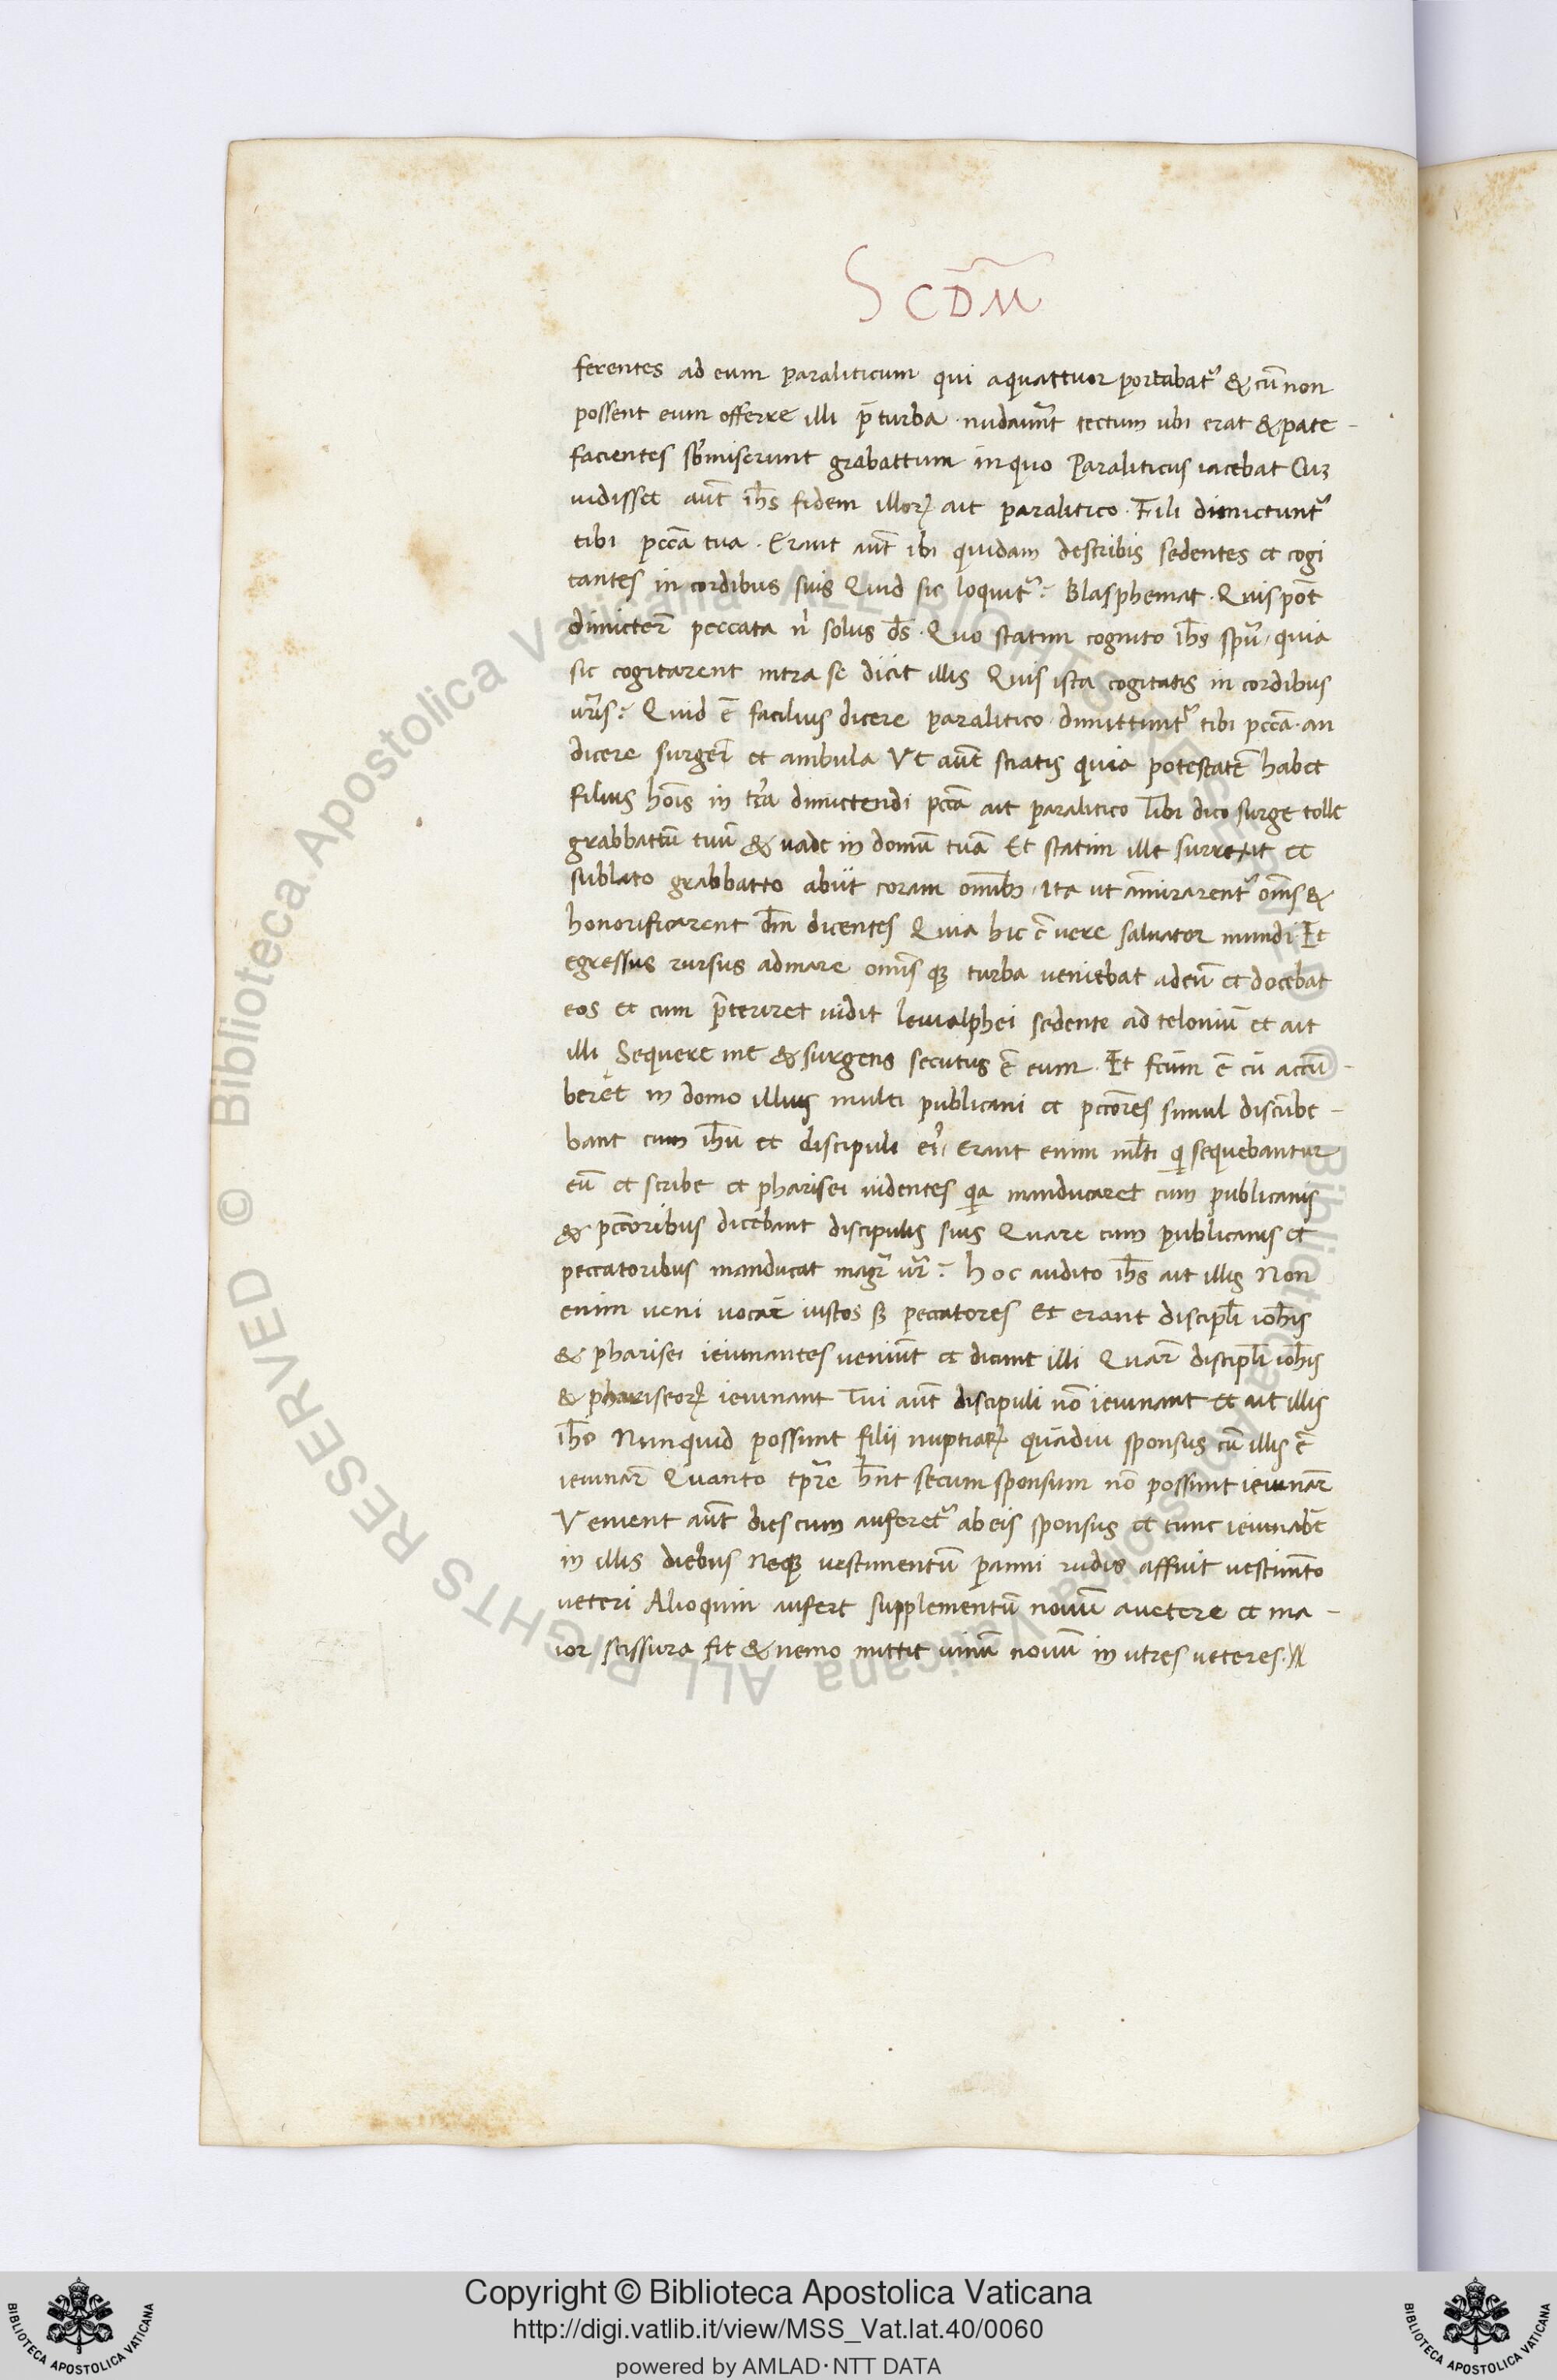 SCD̅M
ferentes ad eum paraliticum qui a quattuor portabat᷑ & cu̅ non
possent eum offerre illi p̅ turba · nudaue̅rt tectum ubi erat & pate-
facientes sb̅miserunt grabattum in quo Paraliticus iacebat Cuꝫ
uidisset aut̅ ih̅s fidem illoꝝ ait paralitico · Fili dimictunt᷑
tibi pcc̅a tua · Erant aut̅ ibi quidam de scribis sedentes et cogi
tantes in cordibus suis Quid sic loquit᷑? Blasphemat · Quis pot̅
dimicter̅ peccata n̅ solus d̅s · Quo statim cognito ih̅s spu̅ · quia
sic cogitarent intra se dicit illis Quis ista cogitatis in cordibus
ur̅is? Quid e̅ facilius dicere paralitico dimittunt᷑ tibi pcc̅a · an
dicere surger̅ et ambula Vt aut̅ sciatis quia potestate̅ habet
filius ho̅is in tr̅a dimictendi pcc̅a ait paralitico Tibi dico surge tolle
grabbattu̅ tuu̅ & uade in domu̅ tua̅ Et statim ille surrexit et
sublato grabbatto abiit coram omib̅ · ita ut am̅irarent᷑ om̅s &
honorificarent dm̅ dicentes Quia hic e̅ uere saluator mundi · Et
egressus rursus ad mare omis̅ qꝫ turba ueniebat ad eu̅ et docebat
eos et cum p̅teriret uidit leui alphei sedente ad teloniu̅ et ait
illi Sequere me & surgens secutus e̅ eum · Et fc̅um e̅ cu̅ accu̅-
beret in domo illius multi publicani et pcco̅res simul discu̅be-
bant cum ih̅u et discipuli ei᷒ · erant enim ml̅ti qi sequebantur
eu̅ et scribe et pharisei uidentes qa manducaret cum publicanis
& pcco̅ribus dicebant discipulis suis Quare cum publicanis et
peccatoribus manducat magr̅ ur̅? hoc audito ih̅s ait illis Non
enim ueni uocar̅ iustos sꝫ peccatores Et erant discipl̅i ioh̅is
& pharisei ieiunantes ueniu̅t et dicunt illi Quar̅ discipl̅i ioh̅is
& phariseoꝝ ieiunant Tui aut̅ discipuli no̅ ieiunant et ait illis
ih̅s Nunquid possunt filii nuptiaꝝ qua̅diu sponsus cu̅ illis e̅
ieiunar̅ Quanto tp̅re hn̅t secum sponsum no̅ possunt ieiunar̅
Venient aut̅ dies cum auferet᷑ ab eis sponsus et tunc ieiunabt̅
in illis diebus Neqꝫ uestimentu̅ panni rudis affuit uestim̅to
ueteri Alioquin aufert supplementu̅ nouu̅ a uetere et ma-
ior scissura fit & nemo mittit uinu̅ nouu̅ in utres ueteres ·
Copyright © Biblioteca Apostolica Vaticana
http://digi.vatlib.it/view/MSS_Vat.lat.40/0060
powered by AMLAD·NTT DATA
BIBLIOTECA APOSTOLICA VATICANA
BIBLIOTECA APOSTOLICA VATICANA
© Biblioteca Apostolica Vaticana ALL RIGHTS RESERVED
© Biblioteca Apostolica Vaticana ALL RIGHTS RESERVED